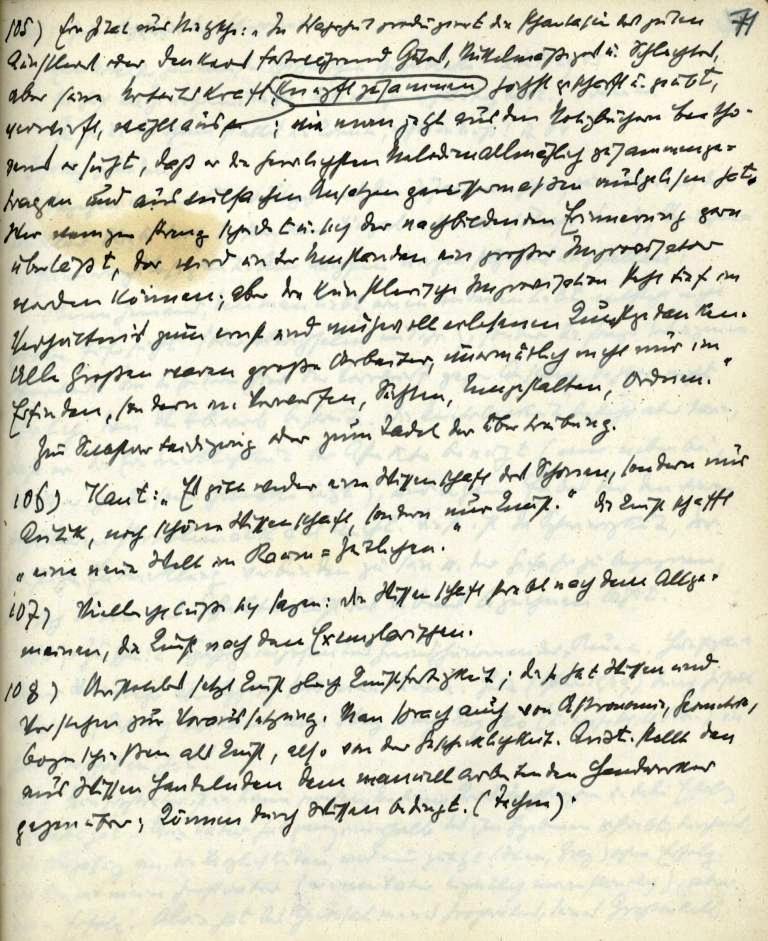 71
105) Ein Zitat aus Nietzsche: „In Wahrheit produziert die Phantasie des guten
Künstlers oder Denkers fortwährend Gutes, Mittelmäßiges u. Schlechtes,
aber seine Urteilskraft, höchst geschärft u. geübt,
verwirft, wählt aus, knüpft zusammen; wie man jetzt aus den Notizbüchern Beetho-
vens ersieht, daß er die herrlichsten Melodien allmählich zusammenge-
tragen und aus vielfachen Ansätzen gewissermaßen ausgelesen hat.
Wer weniger streng scheidet u. sich der nachbildenden Erinnerung gern
überläßt, der wird unter Umständen ein großer Improvisator
werden können; aber die künstlerische Improvisation steht tief im
Verhältnis zum ernst und mühevoll erlesenen Kunstgedanken.
Alle Großen waren große Arbeiter, unermüdlich nicht nur im
Erfinden, sondern im Verwerfen, Sichten, Umgestalten, Ordnen."
Zur Selbstverteidigung oder zum Tadel der Übertreibung.
106) Kant: „Es gibt weder eine Wissenschaft des Schönen, sondern nur
Kritik, noch schöne Wissenschaft, sondern nur Kunst." Die Kunst schafft
„eine neue Welt im Raum=Zeitlichen."
107) Vielleicht ließe sich sagen: die Wissenschaft strebt nach dem Allge-
meinen, die Kunst nach dem Exemplarischen.
108) Aristoteles setzt Kunst gleich Kunstfertigkeit; das hat Wissen und
Verstehen zur Voraussetzung. Man sprach auch von Astronomie, Geometrie,
Bogenschießen als Kunst, also von der Geschicklichkeit. Arist. stellt den
aus Wissen Handelnden dem manuell arbeitenden Handwerker
gegenüber; Können durch Wissen bedingt. (Techne).